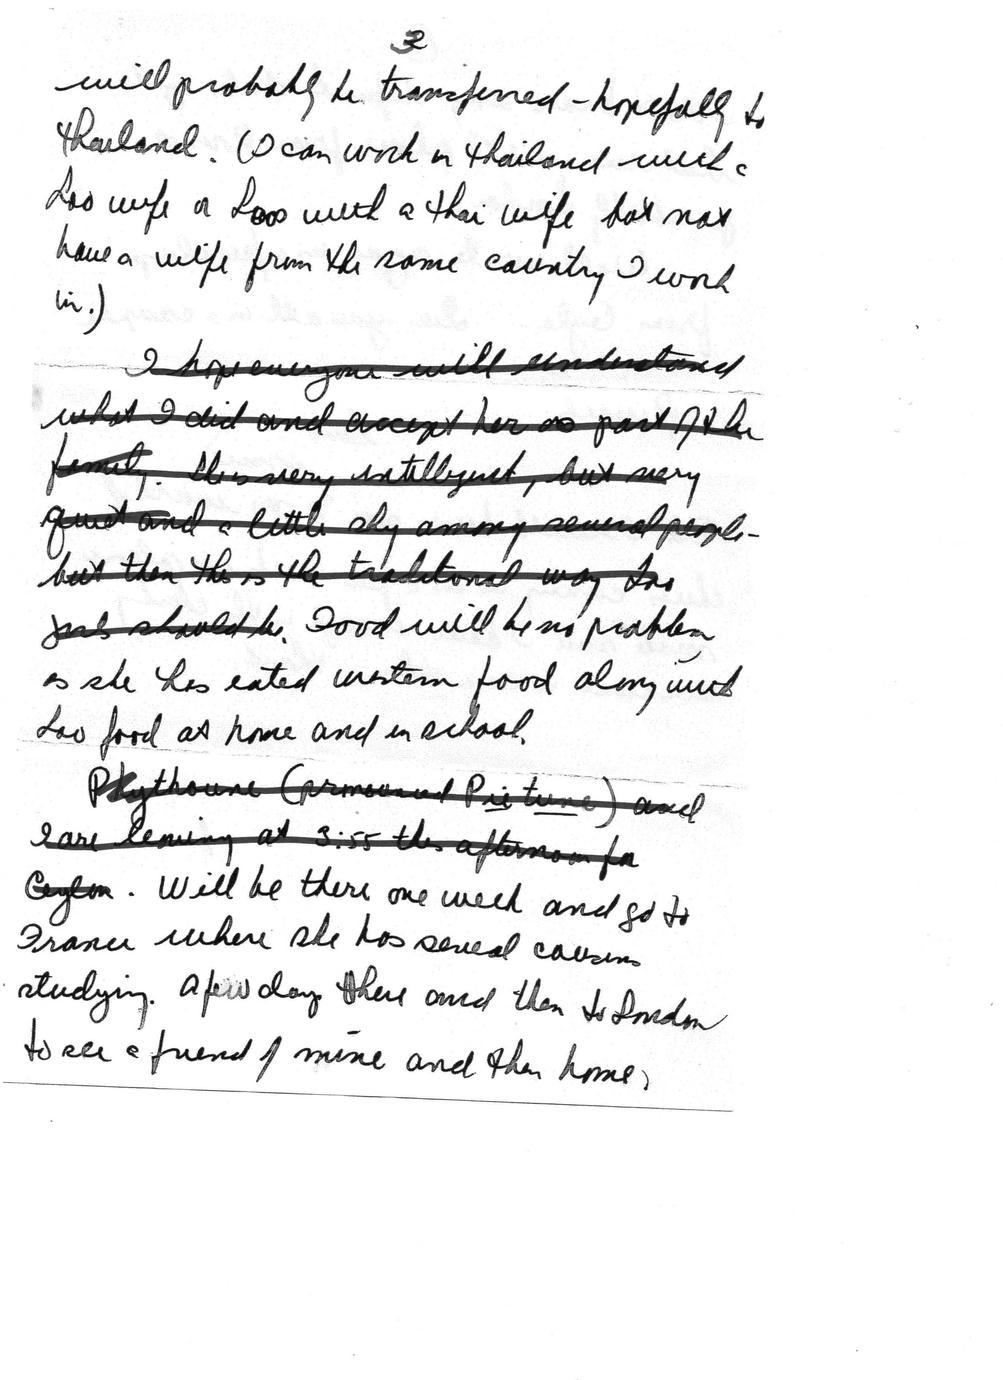 32
will probably be transferred - hopefully to
Thailand. (I can work in Thailand with a
Lao wife or Laos with a Thai wife but not
have a wife from the same country I work
in.)
I hope everyone will understand
what I did and accept her as part of the
family. She is very intelligent, but very
quiet and a little shy among several people -
but then this is the traditional way Lao
girls should be. Food will be no problem
as she has eated western food along with
Lao food at home and in school.
(pronounced Pietune) and
I are leaving at 3:55 this afternoon for
Ceylon. Will be there one week and go to
France where she has several cousins
studying. A few days there and then to London
to see a friend of mine and then home,